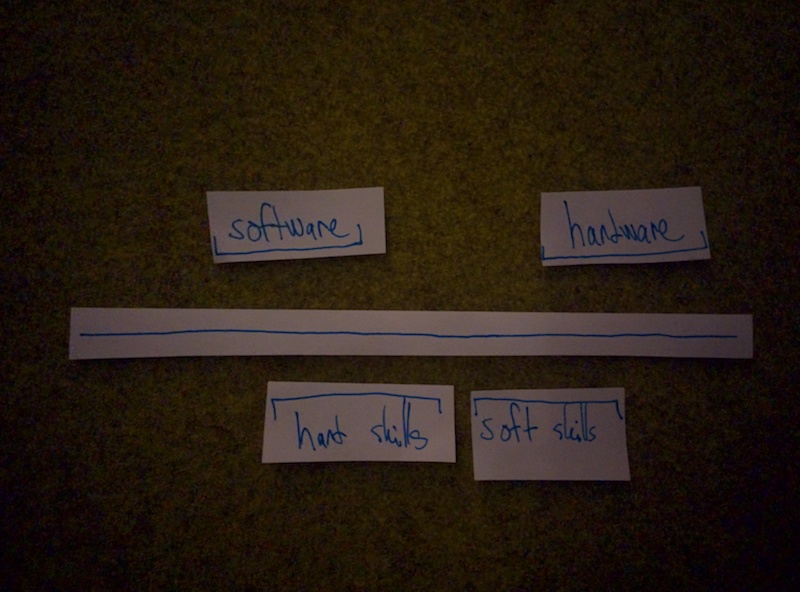 software
hardware
hard skills
soft skills